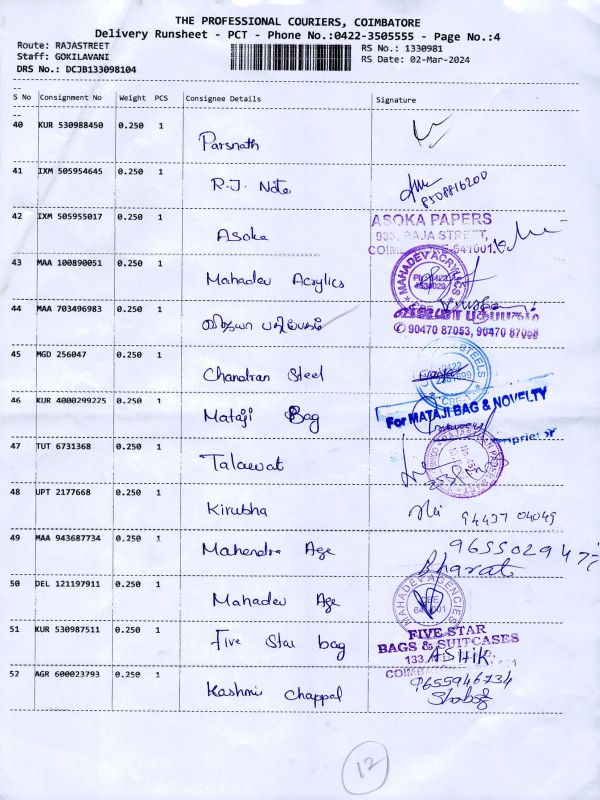 THE PROFESSIONAL COURIERS, COIMBATORE
Delivery Runsheet - PCT - Phone No.:0422-3505555 - Page No.:4
Route: RAJASTREET
RS No.: 1330981
Staff: GOKILAVANI
RS Date: 02-Mar-2024
DRS No.: DCJB133098104
S No Consignment No Weight PCS Consignee Details Signature
40 KUR 530988450 0.250 1 Parsnath
41 IXM 505954645 0.250 1 R.J. Note
8508816200
42 IXM 505955017 0.250 1 Asoka
ASOKA PAPERS
933, RAJA STREET,
43 MAA 100890051 0.250 1 Mahadev Acrylics
MAHADEV ACRYLICS
44 MAA 703496983 0.250 1
✆ 90470 87053, 90470 87058
45 MGD 256047 0.250 1 Chandran Steel
STEELS
46 KUR 4000299225 0.250 1 Mataji Bag
For MATAJI BAG & NOVELTY
47 TUT 6731368 0.250 1 Talawat
48 UPT 2177668 0.250 1 Kirubha
94437 04049
49 MAA 943687734 0.250 1 Mahendra Age
Bharat
50 DEL 121197911 0.250 1 Mahadev Age
MAHADEV AGENCIES
51 KUR 530987511 0.250 1 Five Star bag
FIVE STAR
BAGS & SUITCASES
ASHIK
52 AGR 600023793 0.250 1 Kashmir Chappal
9655946734
12